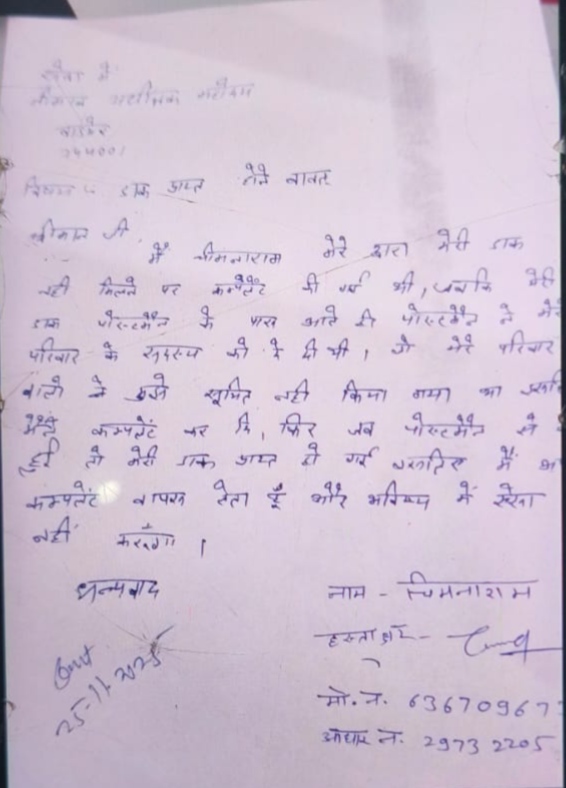 सेवा में
श्रीमान अधीक्षक महोदय
बाडमेर
344001
विषय :- डाक प्राप्त होने बाबत
श्रीमान जी,
मैं चीमनाराम मेरे द्वारा मेरी डाक
नही मिलने पर कम्पलेंट की गई थी, जबकि मेरी
डाक पोस्टमैन के पास आते ही पोस्टमैन ने मेरे
परिवार के सदस्य को दे दी थी, जो मेरे परिवार
वालो ने मुझे सूचित नही किया गया था
मैंने कम्पलेंट कर दि, फिर जब पोस्टमैन से
हुई तो मेरी डाक प्राप्त हो गई इसलिए मैं
कम्पलेंट वापस लेता हूँ और भविष्य में ऐसा
नहीं करूंगा ।
धन्यवाद
नाम - चिमनाराम
हस्ताक्षर -
25-11-2025
मो.न. 636709673
आधार न. 2973 2205